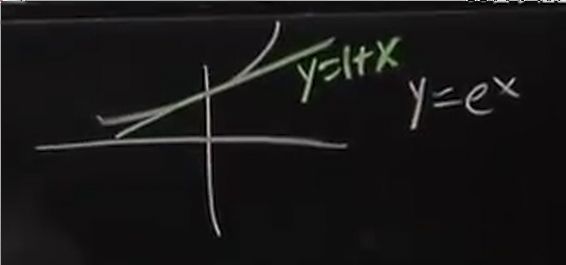 y=1+x
y=eˣ